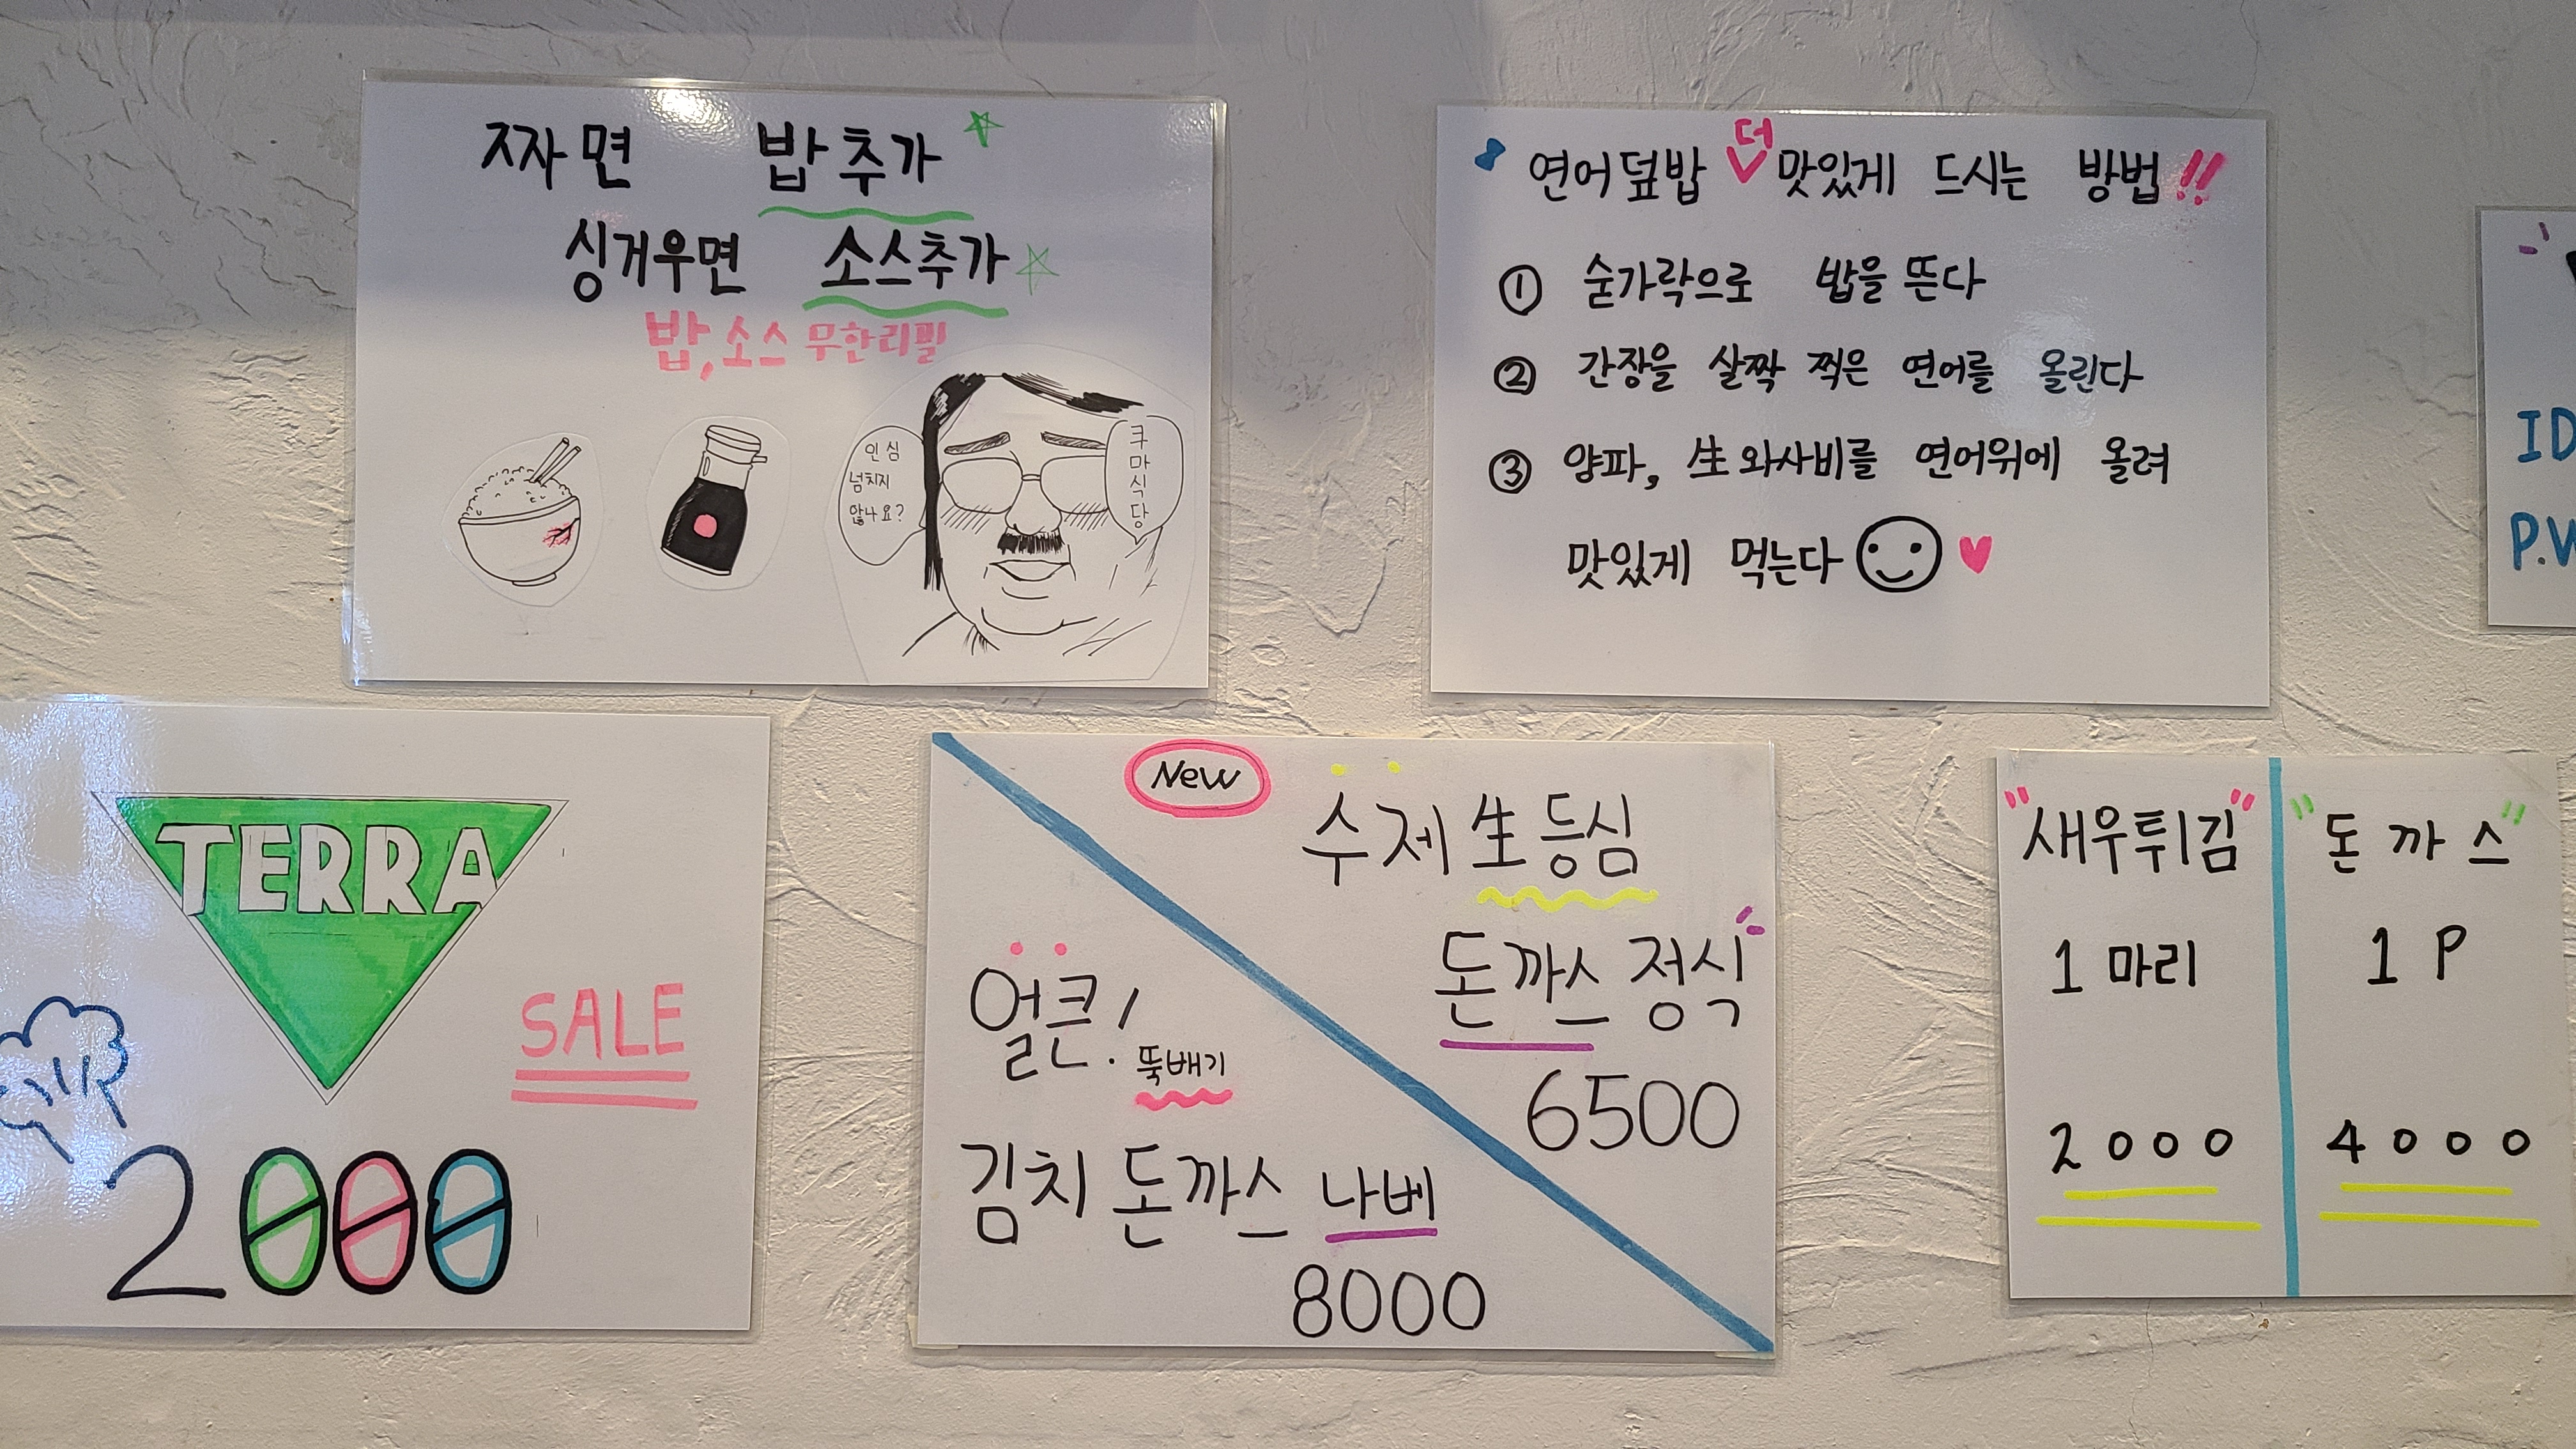 짜면 밥추가
싱거우면 소스추가
밥,소스 무한리필
인심
넘치지
않나요?
쿠
마
식
당
연어덮밥 더 맛있게 드시는 방법!!
① 숟가락으로 밥을 뜬다
② 간장을 살짝 찍은 연어를 올린다
③ 양파, 生와사비를 연어위에 올려
맛있게 먹는다
ID
P.W
TERRA
SALE
2000
New
수제 生등심
돈까스 정식
6500
얼큰!
뚝배기
김치 돈까스 나베
8000
"새우튀김"
1 마리
2000
"돈까스"
1 P
4000